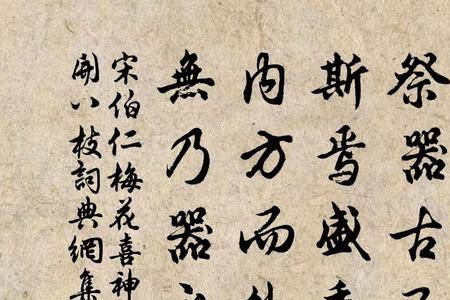 祭器古
斯焉盛
内方而
無乃器
宋伯仁梅花喜神
開八枝詞典網集